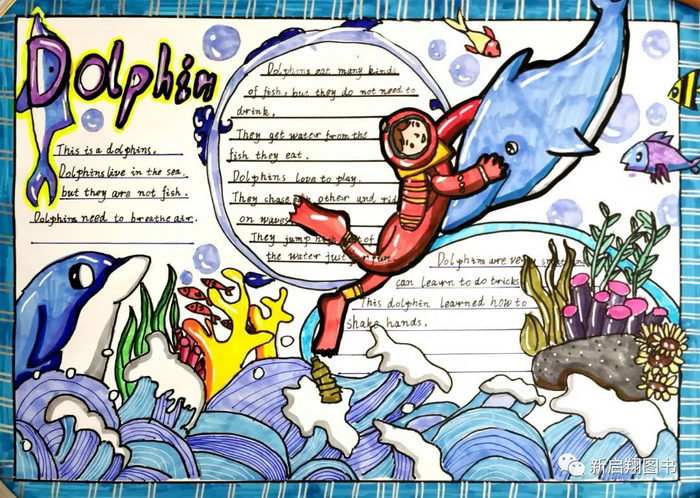 Dolphin
This is a dolphins.
Dolphins live in the sea.
but they are not fish.
Dolphins need to breathe air.
Dolphins eat many kinds
of fish, but they do not need to
drink.
They get water from the
fish they eat.
Dolphins Love to play.
They chase other and
on waves
They jump of
the water just fun
Dolphins are very
can learn to do trick
This dolphin learned how to
shake hands.
新启翔图书